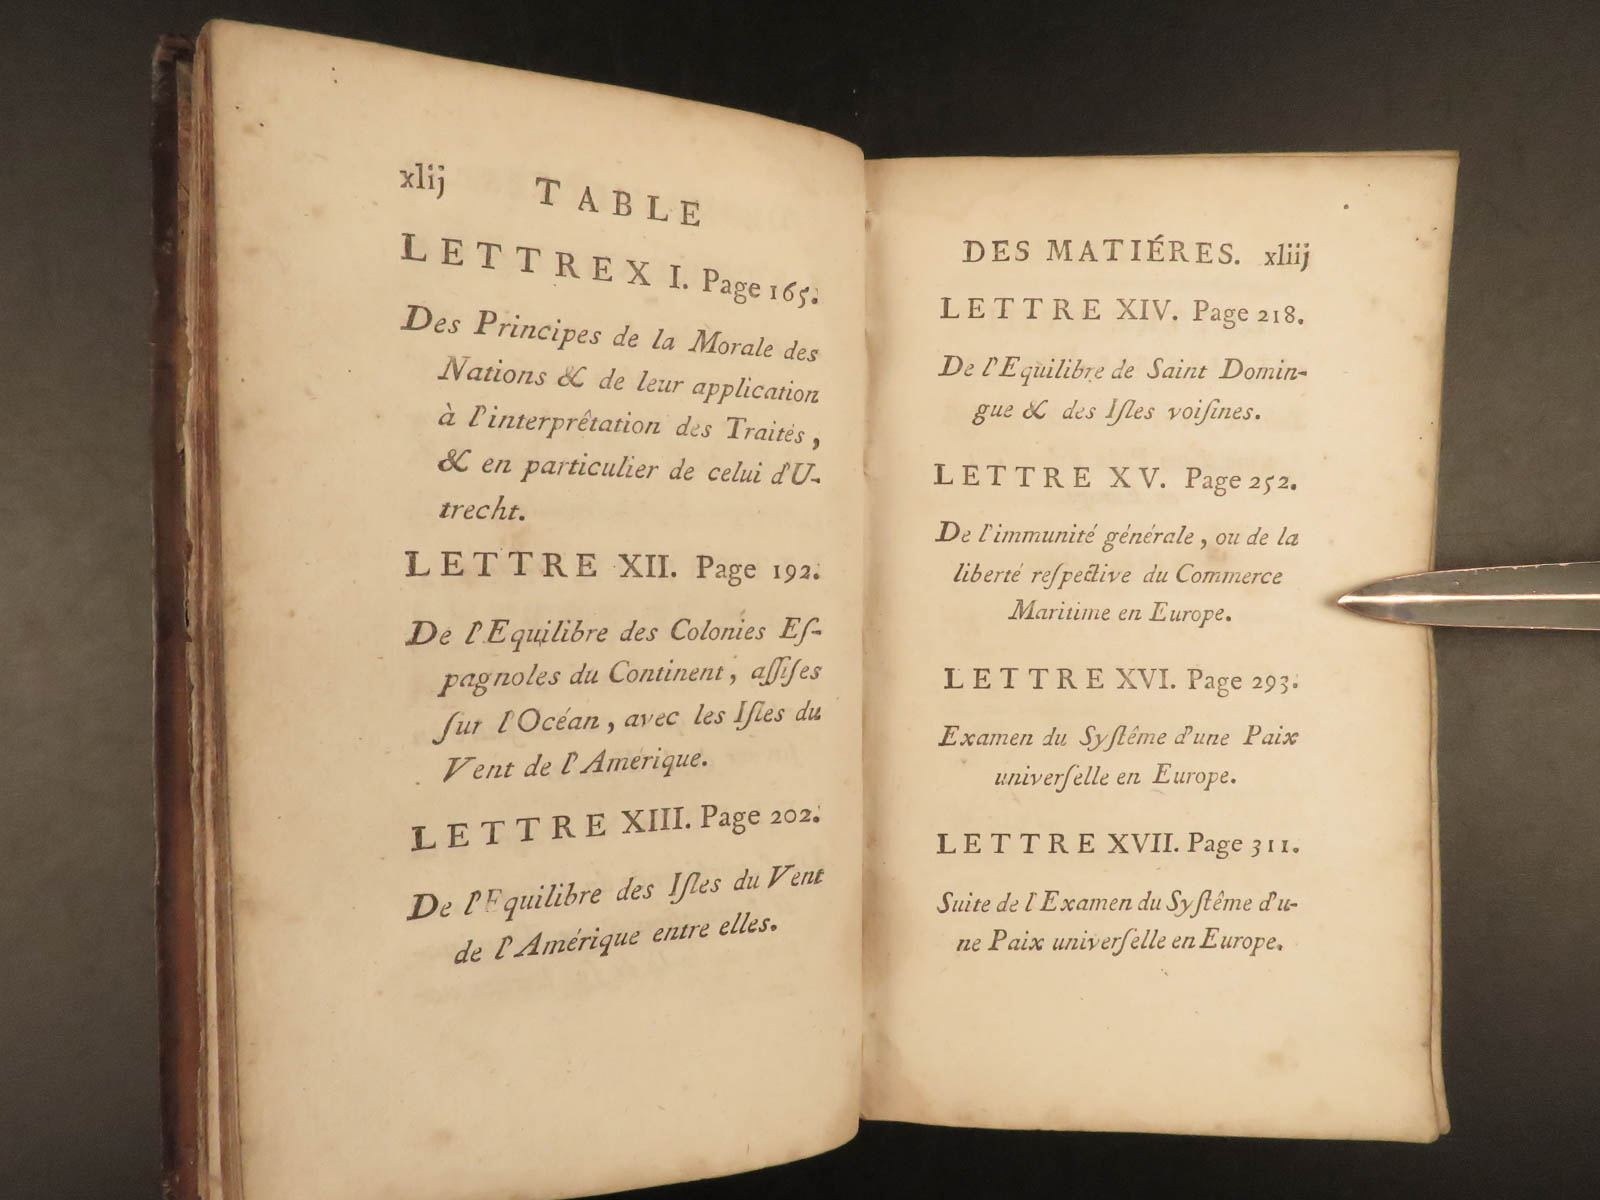 xlij TABLE
LETTRE XI. Page 165.
Des Principes de la Morale des
Nations & de leur application
à l'interprêtation des Traités,
& en particulier de celui d'U-
trecht.
LETTRE XII. Page 192.
De l'Equilibre des Colonies Eſ-
pagnoles du Continent, aſſiſes
ſur l'Océan, avec les Iſles du
Vent de l'Amérique.
LETTRE XIII. Page 202.
De l'Equilibre des Iſles du Vent
de l'Amérique entre elles.
DES MATIÉRES. xliij
LETTRE XIV. Page 218.
De l'Equilibre de Saint Domin-
gue & des Iſles voiſines.
LETTRE XV. Page 252.
De l'immunité générale, ou de la
liberté reſpective du Commerce
Maritime en Europe.
LETTRE XVI. Page 293.
Examen du Syſtême d'une Paix
univerſelle en Europe.
LETTRE XVII. Page 311.
Suite de l'Examen du Syſtême d'u-
ne Paix univerſelle en Europe.